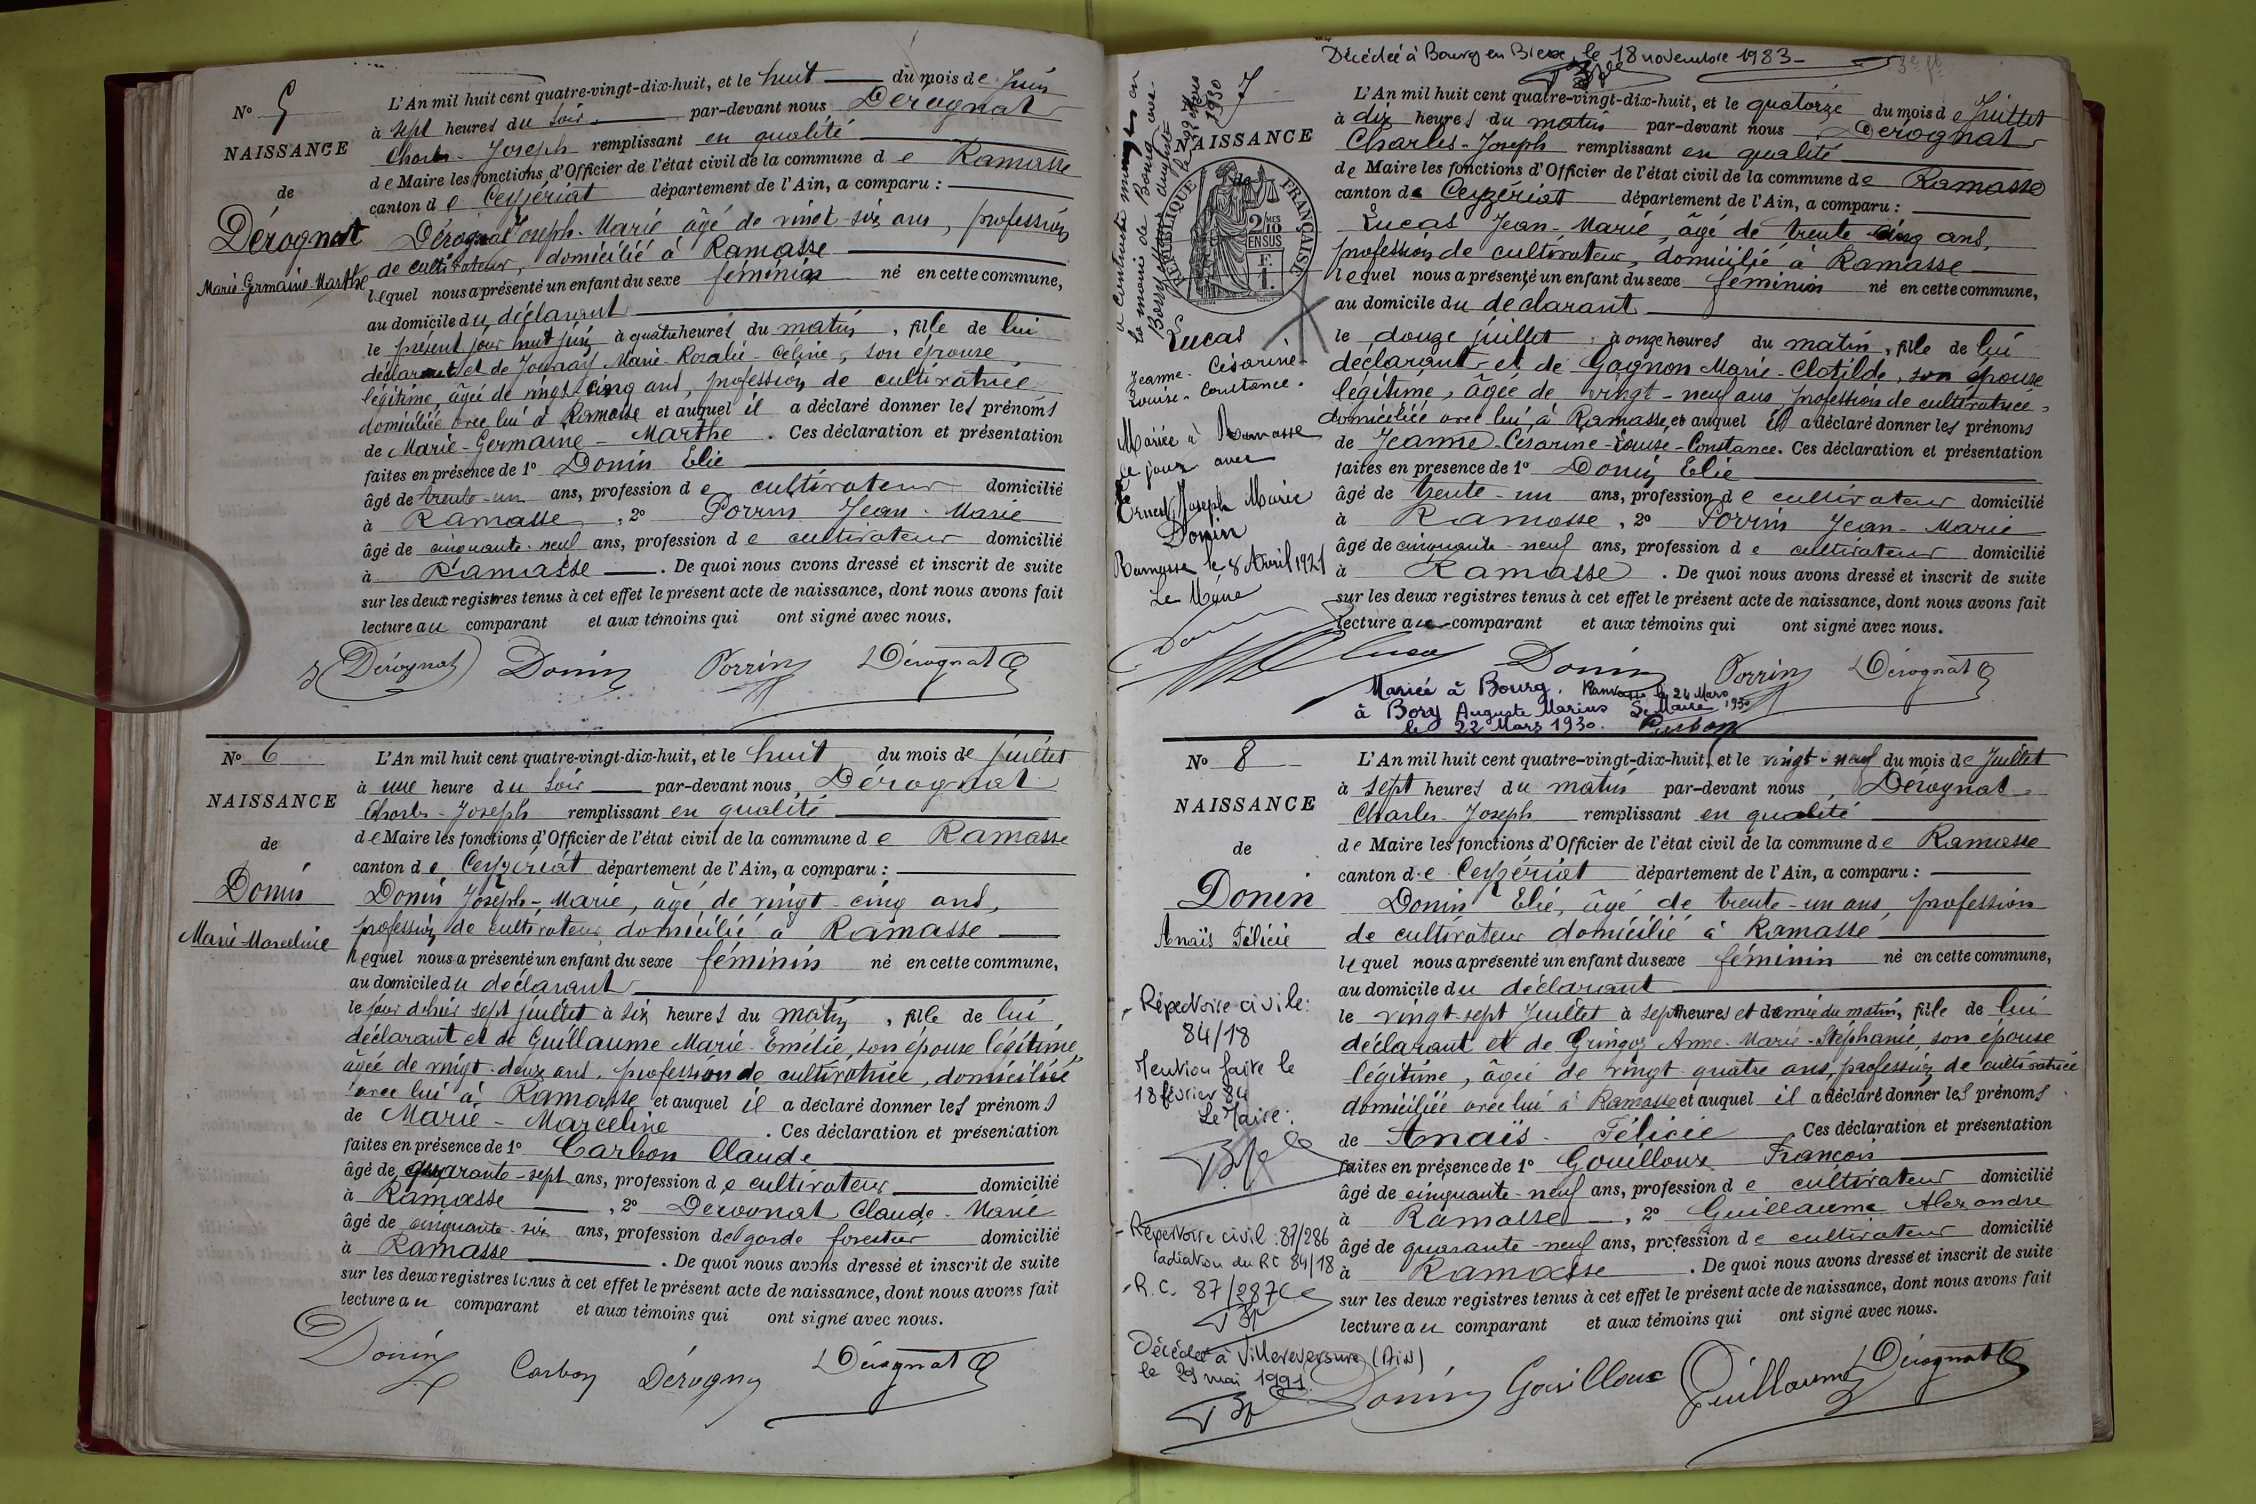 No 5
NAISSANCE
de
Dérognat
Marie-Germaine-Marthe
L'An mil huit cent quatre-vingt-dix-huit, et le huit du mois de Juin
à sept heures du soir par-devant nous Dérognat
Charles-Joseph remplissant en qualité
de Maire les fonctions d'Officier de l'état civil de la commune de Ramasse
canton de Ceyzériat département de l'Ain, a comparu :
Dérognat Joseph-Marie âgé de vingt-six ans, profession
de cultivateur, domicilié à Ramasse
lequel nous a présenté un enfant du sexe féminin né en cette commune,
au domicile du déclarant
le présent jour huit juin à quatre heures du matin, fille de lui
déclarant et de Marie-Rosalie-Céline, son épouse
légitime, âgée de vingt-cinq ans, profession de cultivatrice
domiciliée avec lui à Ramasse et auquel il a déclaré donner les prénoms
de Marie-Germaine-Marthe. Ces déclaration et présentation
faites en présence de 1° Donin Elie
âgé de trente-un ans, profession de cultivateur domicilié
à Ramasse, 2° Porrin Jean-Marie
âgé de cinquante-neuf ans, profession de cultivateur domicilié
à Ramasse. De quoi nous avons dressé et inscrit de suite
sur les deux registres tenus à cet effet le présent acte de naissance, dont nous avons fait
lecture au comparant et aux témoins qui ont signé avec nous.
Dérognat Donin Porrin Dérognat C
No 6
NAISSANCE
de
Donin
Marie Marceline
L'An mil huit cent quatre-vingt-dix-huit, et le huit du mois de juillet
à une heure du soir par-devant nous Dérognat
Charles-Joseph remplissant en qualité
de Maire les fonctions d'Officier de l'état civil de la commune de Ramasse
canton de Ceyzériat département de l'Ain, a comparu :
Donin Joseph-Marie, âgé de vingt-cinq ans,
profession de cultivateur, domicilié à Ramasse
lequel nous a présenté un enfant du sexe féminin né en cette commune,
au domicile du déclarant
le jour d'hier sept juillet à six heures du matin, fille de lui
déclarant et de Guillaume Marie-Emélie, son épouse légitime,
âgée de vingt-deux ans, profession de cultivatrice, domiciliée
avec lui à Ramasse et auquel il a déclaré donner les prénoms
de Marie-Marceline. Ces déclaration et présentation
faites en présence de 1° Carbon Claude
âgé de quarante-sept ans, profession de cultivateur domicilié
à Ramasse, 2° Dérognat Claude-Marie
âgé de cinquante-six ans, profession de garde forestier domicilié
à Ramasse. De quoi nous avons dressé et inscrit de suite
sur les deux registres tenus à cet effet le présent acte de naissance, dont nous avons fait
lecture au comparant et aux témoins qui ont signé avec nous.
Donin Carbon Dérogny Dérognat C
Décédée à Bourg en Bresse le 18 novembre 1983
7
NAISSANCE
de
RÉPUBLIQUE FRANÇAISE
2/10 MES
EN SUS
F.
1.
a contracté mariage en
la mairie de Bourg avec
Bory
1930
Lucas
Jeanne-Césarine-
Louise-Constance.
Mariée à Ramasse
ce jour avec
Ernest Joseph Marie
Donin
Ramasse le 8 Avril 1921
Le Maire
L'An mil huit cent quatre-vingt-dix-huit, et le quatorze du mois de Juillet
à dix heures du matin par-devant nous Dérognat
Charles-Joseph remplissant en qualité
de Maire les fonctions d'Officier de l'état civil de la commune de Ramasse
canton de Ceyzériat département de l'Ain, a comparu :
Lucas Jean-Marie, âgé de trente cinq ans,
profession de cultivateur, domicilié à Ramasse
lequel nous a présenté un enfant du sexe féminin né en cette commune,
au domicile du déclarant
le douze juillet à onze heures du matin, fille de lui
déclarant et de Gagnon Marie-Clotilde, son épouse
légitime, âgée de vingt-neuf ans, profession de cultivatrice,
domiciliée avec lui à Ramasse et auquel il a déclaré donner les prénoms
de Jeanne-Césarine-Louise-Constance. Ces déclaration et présentation
faites en présence de 1° Donin Elie
âgé de trente-un ans, profession de cultivateur domicilié
à Ramasse, 2° Porrin Jean-Marie
âgé de cinquante-neuf ans, profession de cultivateur domicilié
à Ramasse. De quoi nous avons dressé et inscrit de suite
sur les deux registres tenus à cet effet le présent acte de naissance, dont nous avons fait
lecture au comparant et aux témoins qui ont signé avec nous.
Lucas Donin Porrin Dérognat C
Mariée à Bourg. Ramasse le 24 Mars
à Bory Auguste Marius Le Maire 1930
le 22 Mars 1930.
No 8
NAISSANCE
de
Donin
Anaïs Félicie
- Répertoire civile:
84/18
Mention faite le
18 février 84
Le Maire:
- Répertoire civil: 87/286
radiation du RC 84/18
- R.C. 87/287
Décédée à Villereversure (Ain)
le 29 mai 1991.
L'An mil huit cent quatre-vingt-dix-huit, et le vingt-neuf du mois de Juillet
à sept heures du matin par-devant nous, Dérognat
Charles-Joseph remplissant en qualité
de Maire les fonctions d'Officier de l'état civil de la commune de Ramasse
canton de Ceyzériat département de l'Ain, a comparu :
Donin Elie, âgé de trente-un ans, profession
de cultivateur domicilié à Ramasse
lequel nous a présenté un enfant du sexe féminin né en cette commune,
au domicile du déclarant
le vingt-sept Juillet à sept heures et demie du matin, fille de lui
déclarant et de Gringoz Anne-Marie-Stéphanie, son épouse
légitime, âgée de vingt-quatre ans, profession de cultivatrice
domiciliée avec lui à Ramasse et auquel il a déclaré donner les prénoms
de Anaïs-Félicie Ces déclaration et présentation
faites en présence de 1° Gouilloux François
âgé de cinquante-neuf ans, profession de cultivateur domicilié
à Ramasse, 2° Guillaume Alexandre
âgé de quarante-neuf ans, profession de cultivateur domicilié
à Ramasse. De quoi nous avons dressé et inscrit de suite
sur les deux registres tenus à cet effet le présent acte de naissance, dont nous avons fait
lecture au comparant et aux témoins qui ont signé avec nous.
Donin Gouilloux Guillaume Dérognat C